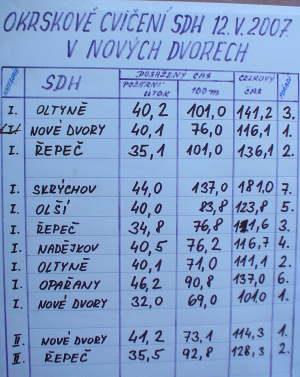 OKRSKOVÉ CVIČENÍ SDH 12.V.2007.
V NOVÝCH DVORECH
KATEGORIE SDH DOSAŽENÝ ČAS CELKOVÝ ČAS POŘADÍ
POŽÁRNÍ ÚTOK 100 m
I. OLTYNĚ 40,2 101,0 141,2 3.
I. NOVÉ DVORY 40,1 76,0 116,1 1.
I. ŘEPEČ 35,1 101,0 136,1 2.
I. SKRÝCHOV 44,0 137,0 181,0 7.
I. OLŠÍ 40,0 83,8 123,8 5.
I. ŘEPEČ 34,8 76,8 111,6 3.
I. NADĚJKOV 40,5 76,2 116,7 4.
I. OLTYNĚ 40,1 71,0 111,1 2.
I. OPAŘANY 46,2 90,8 137,0 6.
I. NOVÉ DVORY 32,0 69,0 101,0 1.
II. NOVÉ DVORY 41,2 73,1 114,3 1.
II. ŘEPEČ 35,5 92,8 128,3 2.